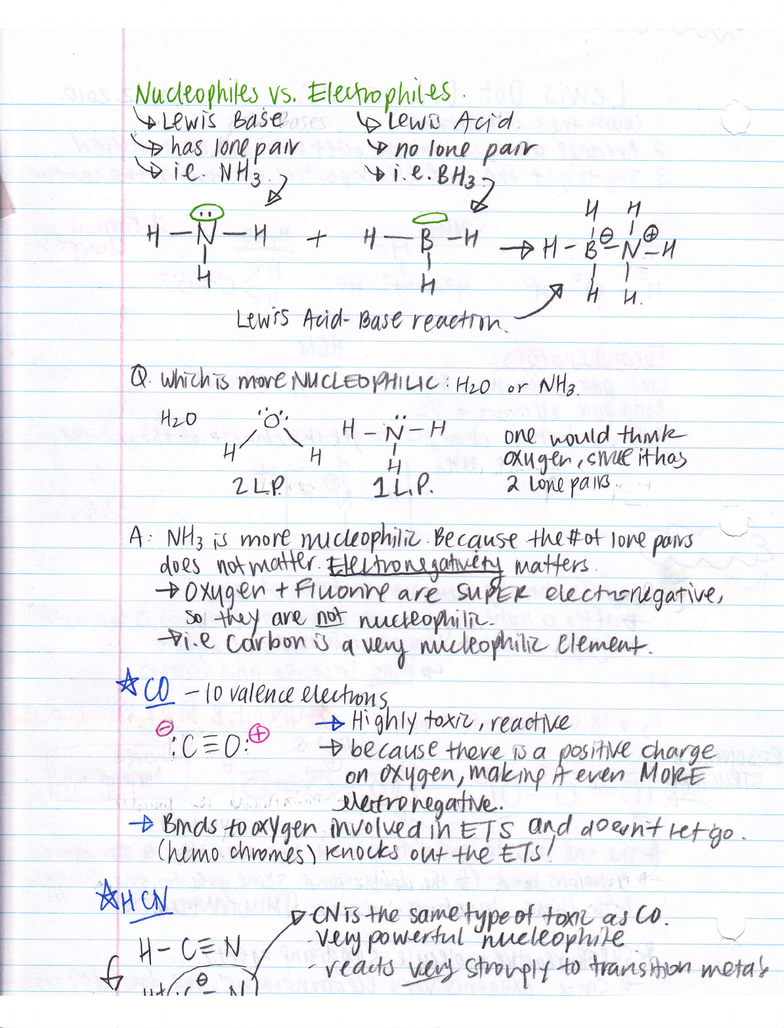 Nucleophiles vs. Electrophiles.
↳ Lewis Base ↳ Lewis Acid
↳ has lone pair ↳ no lone pair
↳ i.e. NH3 ↳ i.e. BH3
H H
H – N – H + H – B – H → H – B⊖ – N⊕ – H
H H H H
Lewis Acid-Base reaction
Q. Which is more NUCLEOPHILIC: H2O or NH3.
H2O O H – N – H one would think
H H H oxygen, since it has
2 L.P. 1 L.P. 2 lone pairs.
A: NH3 is more nucleophilic. Because the # of lone pairs
does not matter. Electronegativity matters.
→ Oxygen + Fluorine are SUPER electronegative,
so they are not nucleophilic.
→ i.e Carbon is a very nucleophilic element.
☆ CO – 10 valence electrons
⊖ :C≡O: ⊕ → Highly toxic, reactive
→ because there is a positive charge
on oxygen, making it even MORE
electronegative.
→ Binds to oxygen involved in ETS and doesn't let go.
(hemo chromes) knocks out the ETS!
☆ HCN
→ CN is the same type of toxic as CO.
H – C≡N very powerful nucleophile
reacts very strongly to transition metals
H+ C⊖ N